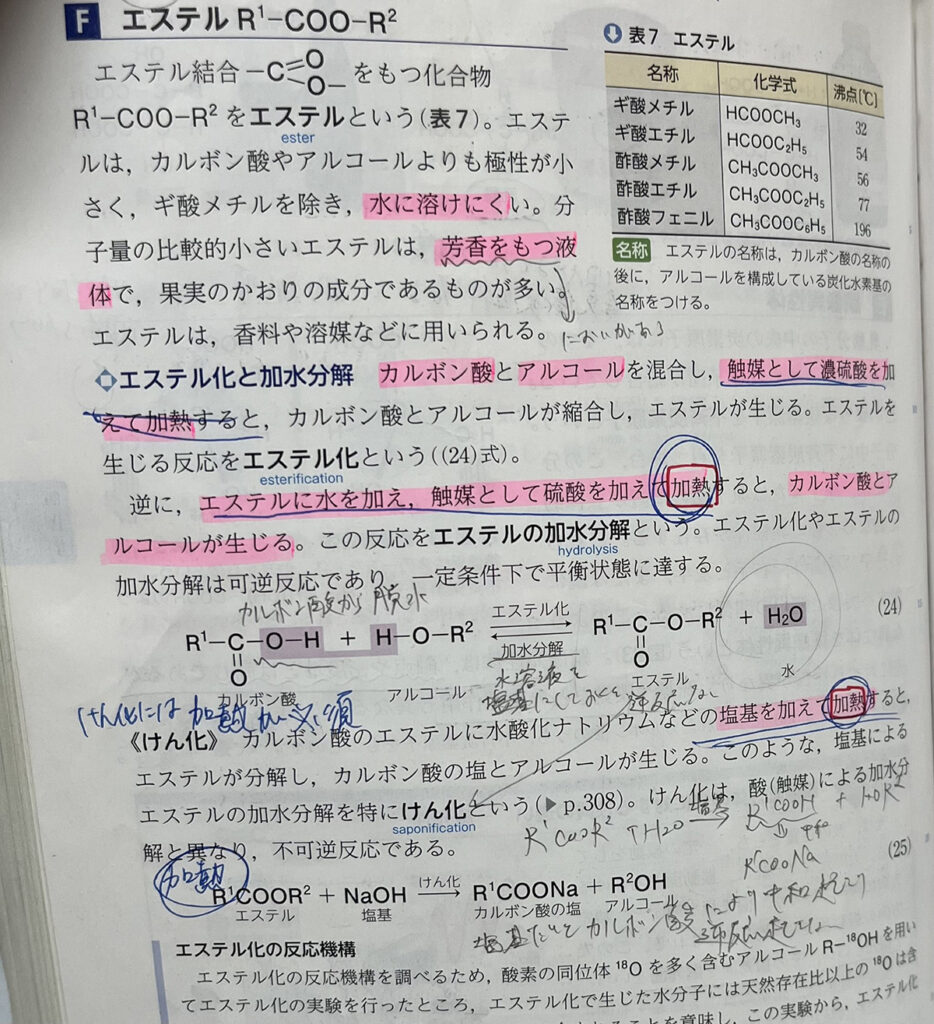 F エステル R¹−COO−R²
エステル結合 −C=O O− をもつ化合物
R¹−COO−R² をエステルという(表7)。エステ
ester
ルは，カルボン酸やアルコールよりも極性が小
さく，ギ酸メチルを除き，水に溶けにくい。分
子量の比較的小さいエステルは，芳香をもつ液
体で，果実のかおりの成分であるものが多い。
エステルは，香料や溶媒などに用いられる。
においがある
表7 エステル
名称 化学式 沸点〔℃〕
ギ酸メチル HCOOCH₃ 32
ギ酸エチル HCOOC₂H₅ 54
酢酸メチル CH₃COOCH₃ 56
酢酸エチル CH₃COOC₂H₅ 77
酢酸フェニル CH₃COOC₆H₅ 196
名称 エステルの名称は，カルボン酸の名称の
後に，アルコールを構成している炭化水素基の
名称をつける。
エステル化と加水分解 カルボン酸とアルコールを混合し，触媒として濃硫酸を加
えて加熱すると，カルボン酸とアルコールが縮合し，エステルが生じる。エステルを
生じる反応をエステル化という((24)式)。
esterification
逆に，エステルに水を加え，触媒として硫酸を加えて加熱すると，カルボン酸とア
ルコールが生じる。この反応をエステルの加水分解という。エステル化やエステルの
hydrolysis
加水分解は可逆反応であり，一定条件下で平衡状態に達する。
カルボン酸から脱水
R¹−C−O−H + H−O−R² エステル化 加水分解 R¹−C−O−R² + H₂O (24)
O O
カルボン酸 アルコール エステル 水
水溶液を
塩基にしておくと逆反応しない
けん化には加熱が必須
《けん化》 カルボン酸のエステルに水酸化ナトリウムなどの塩基を加えて加熱すると，
エステルが分解し，カルボン酸の塩とアルコールが生じる。このような，塩基による
エステルの加水分解を特にけん化という(▶p.308)。けん化は，酸(触媒)による加水分
saponification
解と異なり，不可逆反応である。
R¹COOR² + H₂O 塩基→ R¹COOH + HOR²
R¹COONa
加熱
R¹COOR² + NaOH けん化→ R¹COONa + R²OH (25)
エステル 塩基 カルボン酸の塩 アルコール
塩基だとカルボン酸により中和起こり
エステル化の反応機構
エステル化の反応機構を調べるため，酸素の同位体¹⁸Oを多く含むアルコールR−¹⁸OHを用い
てエステル化の実験を行ったところ，エステル化で生じた水分子には天然存在比以上の¹⁸Oは含
ことを意味し，この実験から，エステル化